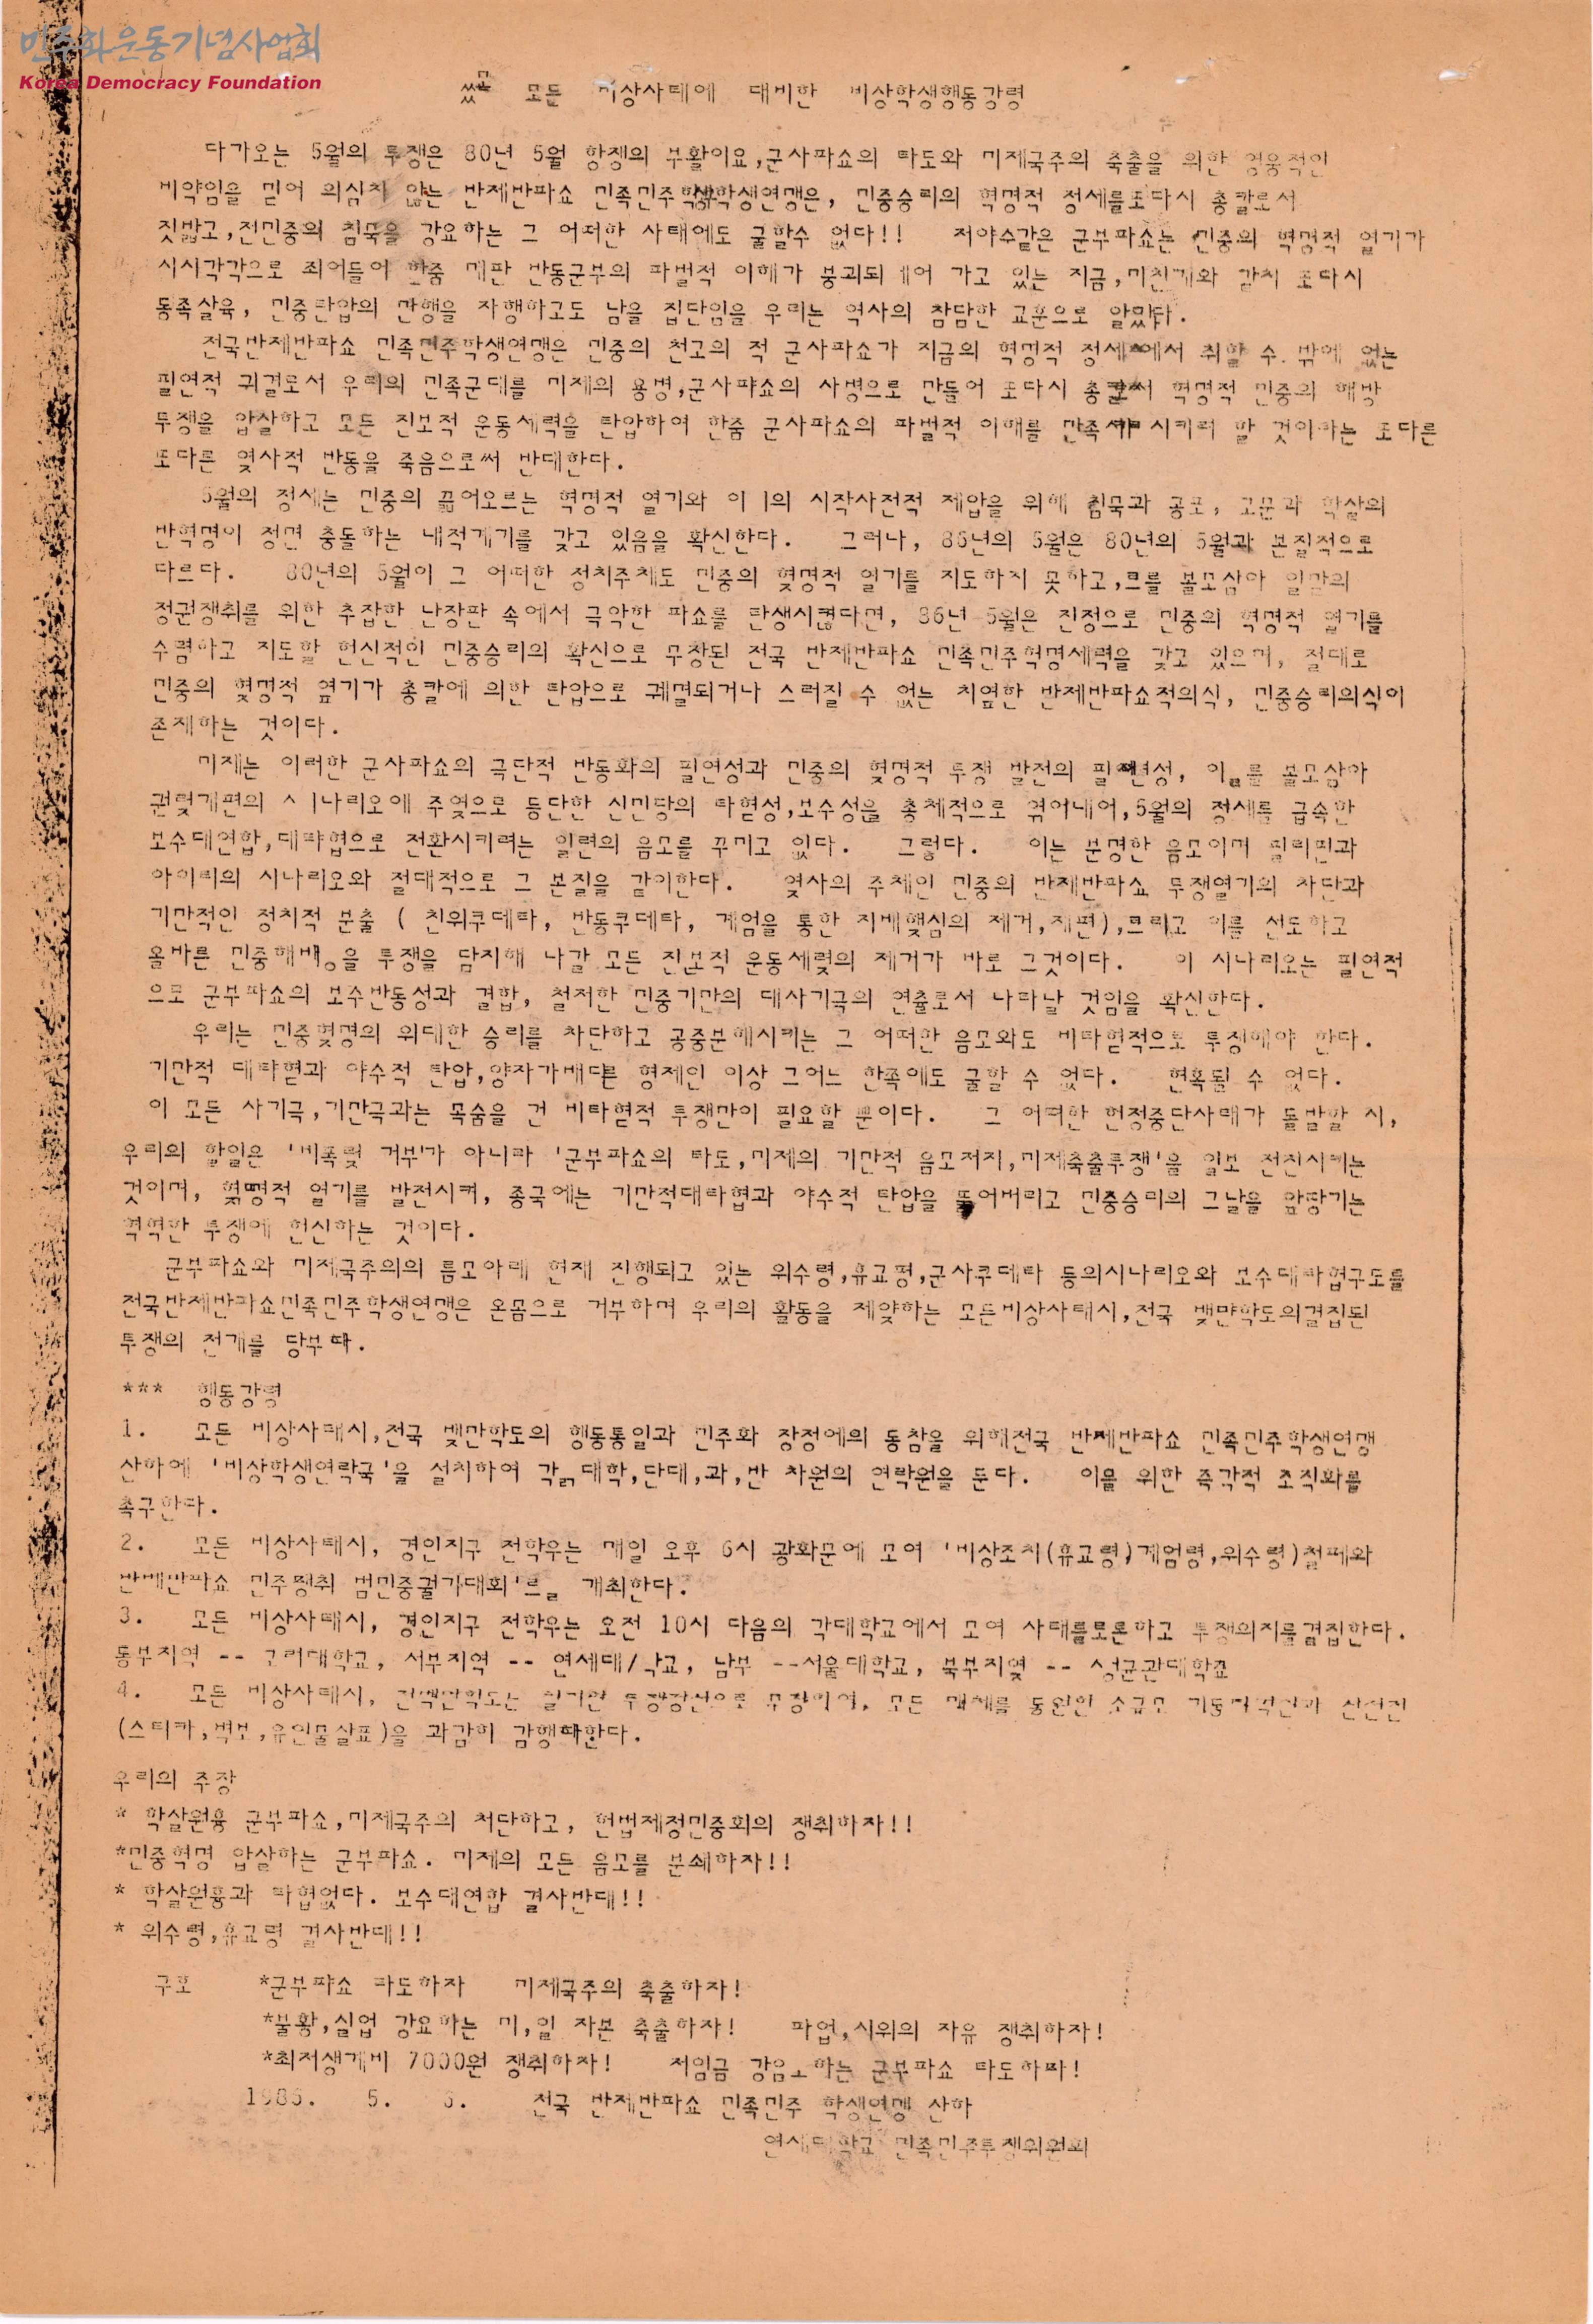 민주화운동기념사업회
Korea Democracy Foundation
모든 비상사태에 대비한 비상학생행동강령
다가오는 5월의 투쟁은 80년 5월 항쟁의 부활이요,군사파쇼의 타도와 미제국주의 축출을 위한 영웅적인
비약임을 믿어 의심치 않는 반제반파쇼 민족민주 학생연맹은, 민중승리의 혁명적 정세를또다시 총칼로서
짓밟고,전민중의 침묵을 강요하는 그 어떠한 사태에도 굴할수 없다!! 저야수같은 군부파쇼는 민중의 혁명적 열기가
시시각각으로 죄어들어 한줌 깨판 반동군부의 파벌적 이해가 붕괴되 어 가고 있는 지금,미친개와 같이 또다시
동족살육, 민중탄압의 만행을 자행하고도 남을 집단임을 우리는 역사의 참담한 교훈으로 알았다.
전국반제반파쇼 민족민주학생연맹은 민중의 천고의 적 군사파쇼가 지금의 혁명적 정세에서 취할 수 밖에 없는
필연적 귀결로서 우리의 민족군대를 미제의 용병,군사파쇼의 사병으로 만들어 또다시 총칼써 혁명적 민중의 해방
투쟁을 압살하고 모든 진보적 운동세력을 탄압하여 한줌 군사파쇼의 파벌적 이해를 만족 시키려 할 것이라는 또다른
또다른 몇사적 반동을 죽음으로써 반대한다.
5월의 정세는 민중의 끓어오르는 혁명적 열기와 이 의 시작사전적 제압을 위해 침묵과 공포, 고문과 학살의
반혁명이 정면 충돌하는 내적계기를 갖고 있음을 확신한다. 그러나, 86년의 5월은 80년의 5월과 본질적으로
다르다. 80년의 5월이 그 어떠한 정치주체도 민중의 혗명적 열기를 지도하지 못하고,므를 볼모삼아 일말의
정권쟁취를 위한 추잡한 난장판 속에서 극악한 파쇼를 탄생시켰다면, 86년 5월은 진정으로 민중의 혁명적 열기를
수렴하고 지도할 헌신적인 민중승리의 확신으로 무장된 전국 반제반파쇼 민족민주혁명세력을 갖고 있으며, 절대로
민중의 혗명적 옆기가 총칼에 의한 탄압으로 궤멸되거나 스러질 수 없는 치옆한 반제반파쇼적의식, 민중승리의식이
존재하는 것이다.
미제는 이러한 군사파쇼의 극단적 반동화의 필연성과 민중의 혗명적 투쟁 발전의 필연성, 이를 볼모삼아
권렻개편의 시나리오에 주옃으로 등단한 신민당의 타협성,보수성을 총체적으로 엮어내어,5월의 정세를 급속한
보수대연합,대탸협으로 전환시키려는 일련의 음모를 꾸미고 있다. 그렇다. 이는 분명한 음모이며 필리핀과
아이티의 시나리오와 절대적으로 그 본질을 같이한다. 옃사의 주체인 민중의 반제반파쇼 투쟁열기의 차단과
기만적인 정치적 분출 ( 친위쿠데타, 반동쿠데타, 계엄을 통한 지배햋심의 제거,재편),므리고 이를 선도하고
올바른 민중해방을 투쟁을 담지해 나갈 모든 진보적 운동세렻의 제거가 바로 그것이다. 이 시나리오는 필연적
으로 군부파쇼의 보수반동성과 결합, 철저한 민중기만의 대사기극의 연출로서 나타날 것임을 확신한다.
우리는 민중혗명의 위대한 승리를 차단하고 공중분해시키는 그 어떠한 음모와도 비타협적으로 투쟁해야 한다.
기만적 대타협과 야수적 탄압,양자가배다른 형제인 이상 그어느 한족에도 굴할 수 없다. 현혹될 수 없다.
이 모든 사기극,기만극과는 목숨을 건 비타협적 투쟁만이 필요할 뿐이다. 그 어떠한 헌정중단사태가 돌발할 시,
우리의 할일은 '비폭렻 거부'가 아니라 '군부파쇼의 타도,미제의 기만적 음모저지,미제축출투쟁'을 일보 전진시키는
것이며, 혗명적 열기를 발전시켜, 종국에는 기만적대타협과 야수적 탄압을 뚫어버리고 민중승리의 그날을 앞당기는
혁혁한 투쟁에 헌신하는 것이다.
군부파쇼와 미제국주의의 름모아래 현재 진행되고 있는 위수령,휴교령,군사쿠데타 등의시나리오와 보수대타협구도를
전국반제반파쇼민족민주학생연맹은 온몸으로 거부하며 우리의 활동을 제얓하는 모든비상사태시,전국 뱃만학도의결집된
투쟁의 전개를 당부 다.
*** 행동강령
1. 모든 비상사태시,전국 뱃만학도의 행동통일과 민주화 장정에의 동참을 위해전국 반제반파쇼 민족민주학생연맹
산하에 '비상학생연락국'을 설치하여 각 대학,단대,과,반 차원의 연락원을 둔다. 이를 위한 즉각적 조직화를
촉구한다.
2. 모든 비상사태시, 경인지구 전학우는 매일 오후 6시 광화문에 모여 '비상조치(휴교령,계엄령,위수령)철폐와
반제반파쇼 민주쟁취 범민중궐기대회'를 개최한다.
3. 모든 비상사태시, 경인지구 전학우는 오전 10시 다음의 각대학교에서 모여 사태를토론하고 투쟁의지를결집한다.
동부지역 -- 고려대학교, 서부지역 -- 연세대학교, 남부 --서울대학교, 북부지옃 -- 성균관대학교
4. 모든 비상사태시, 전백만학도는 투쟁장선으로 무장하여, 모든 매체를 동원한 소규모 선전전
(스티카,벽보,유인물살포)을 과감히 감행한다.
우리의 주장
* 학살원흉 군부파쇼,미제국주의 처단하고, 헌법제정민중회의 쟁취하자!!
*민중혁명 압살하는 군부파쇼. 미제의 모든 음모를 분쇄하자!!
* 학살원흉과 타협없다. 보수대연합 결사반대!!
* 위수령,휴교령 결사반대!!
구호 *군부파쇼 타도하자 미제국주의 축출하자!
*불황,실업 강요하는 미,일 자본 축출하자! 파업,시위의 자유 쟁취하자!
*최저생계비 7000원 쟁취하자! 저임금 강요하는 군부파쇼 타도하자!
1986. 5. 전국 반제반파쇼 민족민주 학생연맹 산하
연세대학교 민족민주투쟁위원회